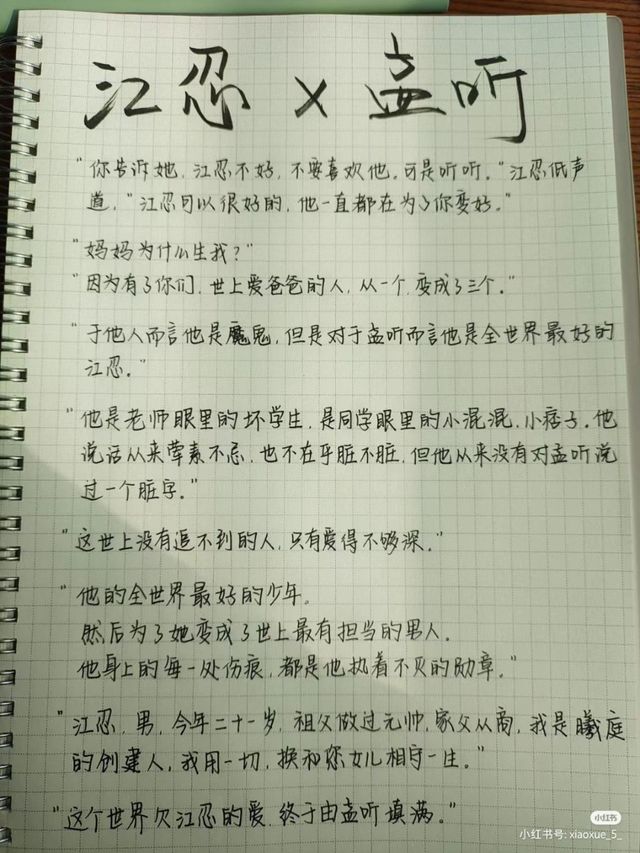 江忍 × 孟听
"你告诉她,江忍不好,不要喜欢他。可是听听。"江忍低声
道,"江忍可以很好的,他一直都在为了你变好。"
"妈妈为什么生我?"
"因为有了你们,世上爱爸爸的人,从一个,变成了三个。"
"于他人而言他是魔鬼,但是对于孟听而言他是全世界最好的
江忍。"
"他是老师眼里的坏学生,是同学眼里的小混混,小痞子。他
说话从来荤素不忌,也不在乎脏不脏,但他从来没有对孟听说
过一个脏字。"
"这世上没有追不到的人,只有爱得不够深。"
"他的全世界最好的少年。
然后为了她变成了世上最有担当的男人。
他身上的每一处伤痕,都是他执着不灭的勋章。"
"江忍,男,今年二十一岁,祖父做过元帅,家父从商,我是曦庭
的创建人,我用一切,换和您女儿相守一生。"
"这个世界欠江忍的爱,终于由孟听填满。"
小红书
小红书号: xiaoxue_5_